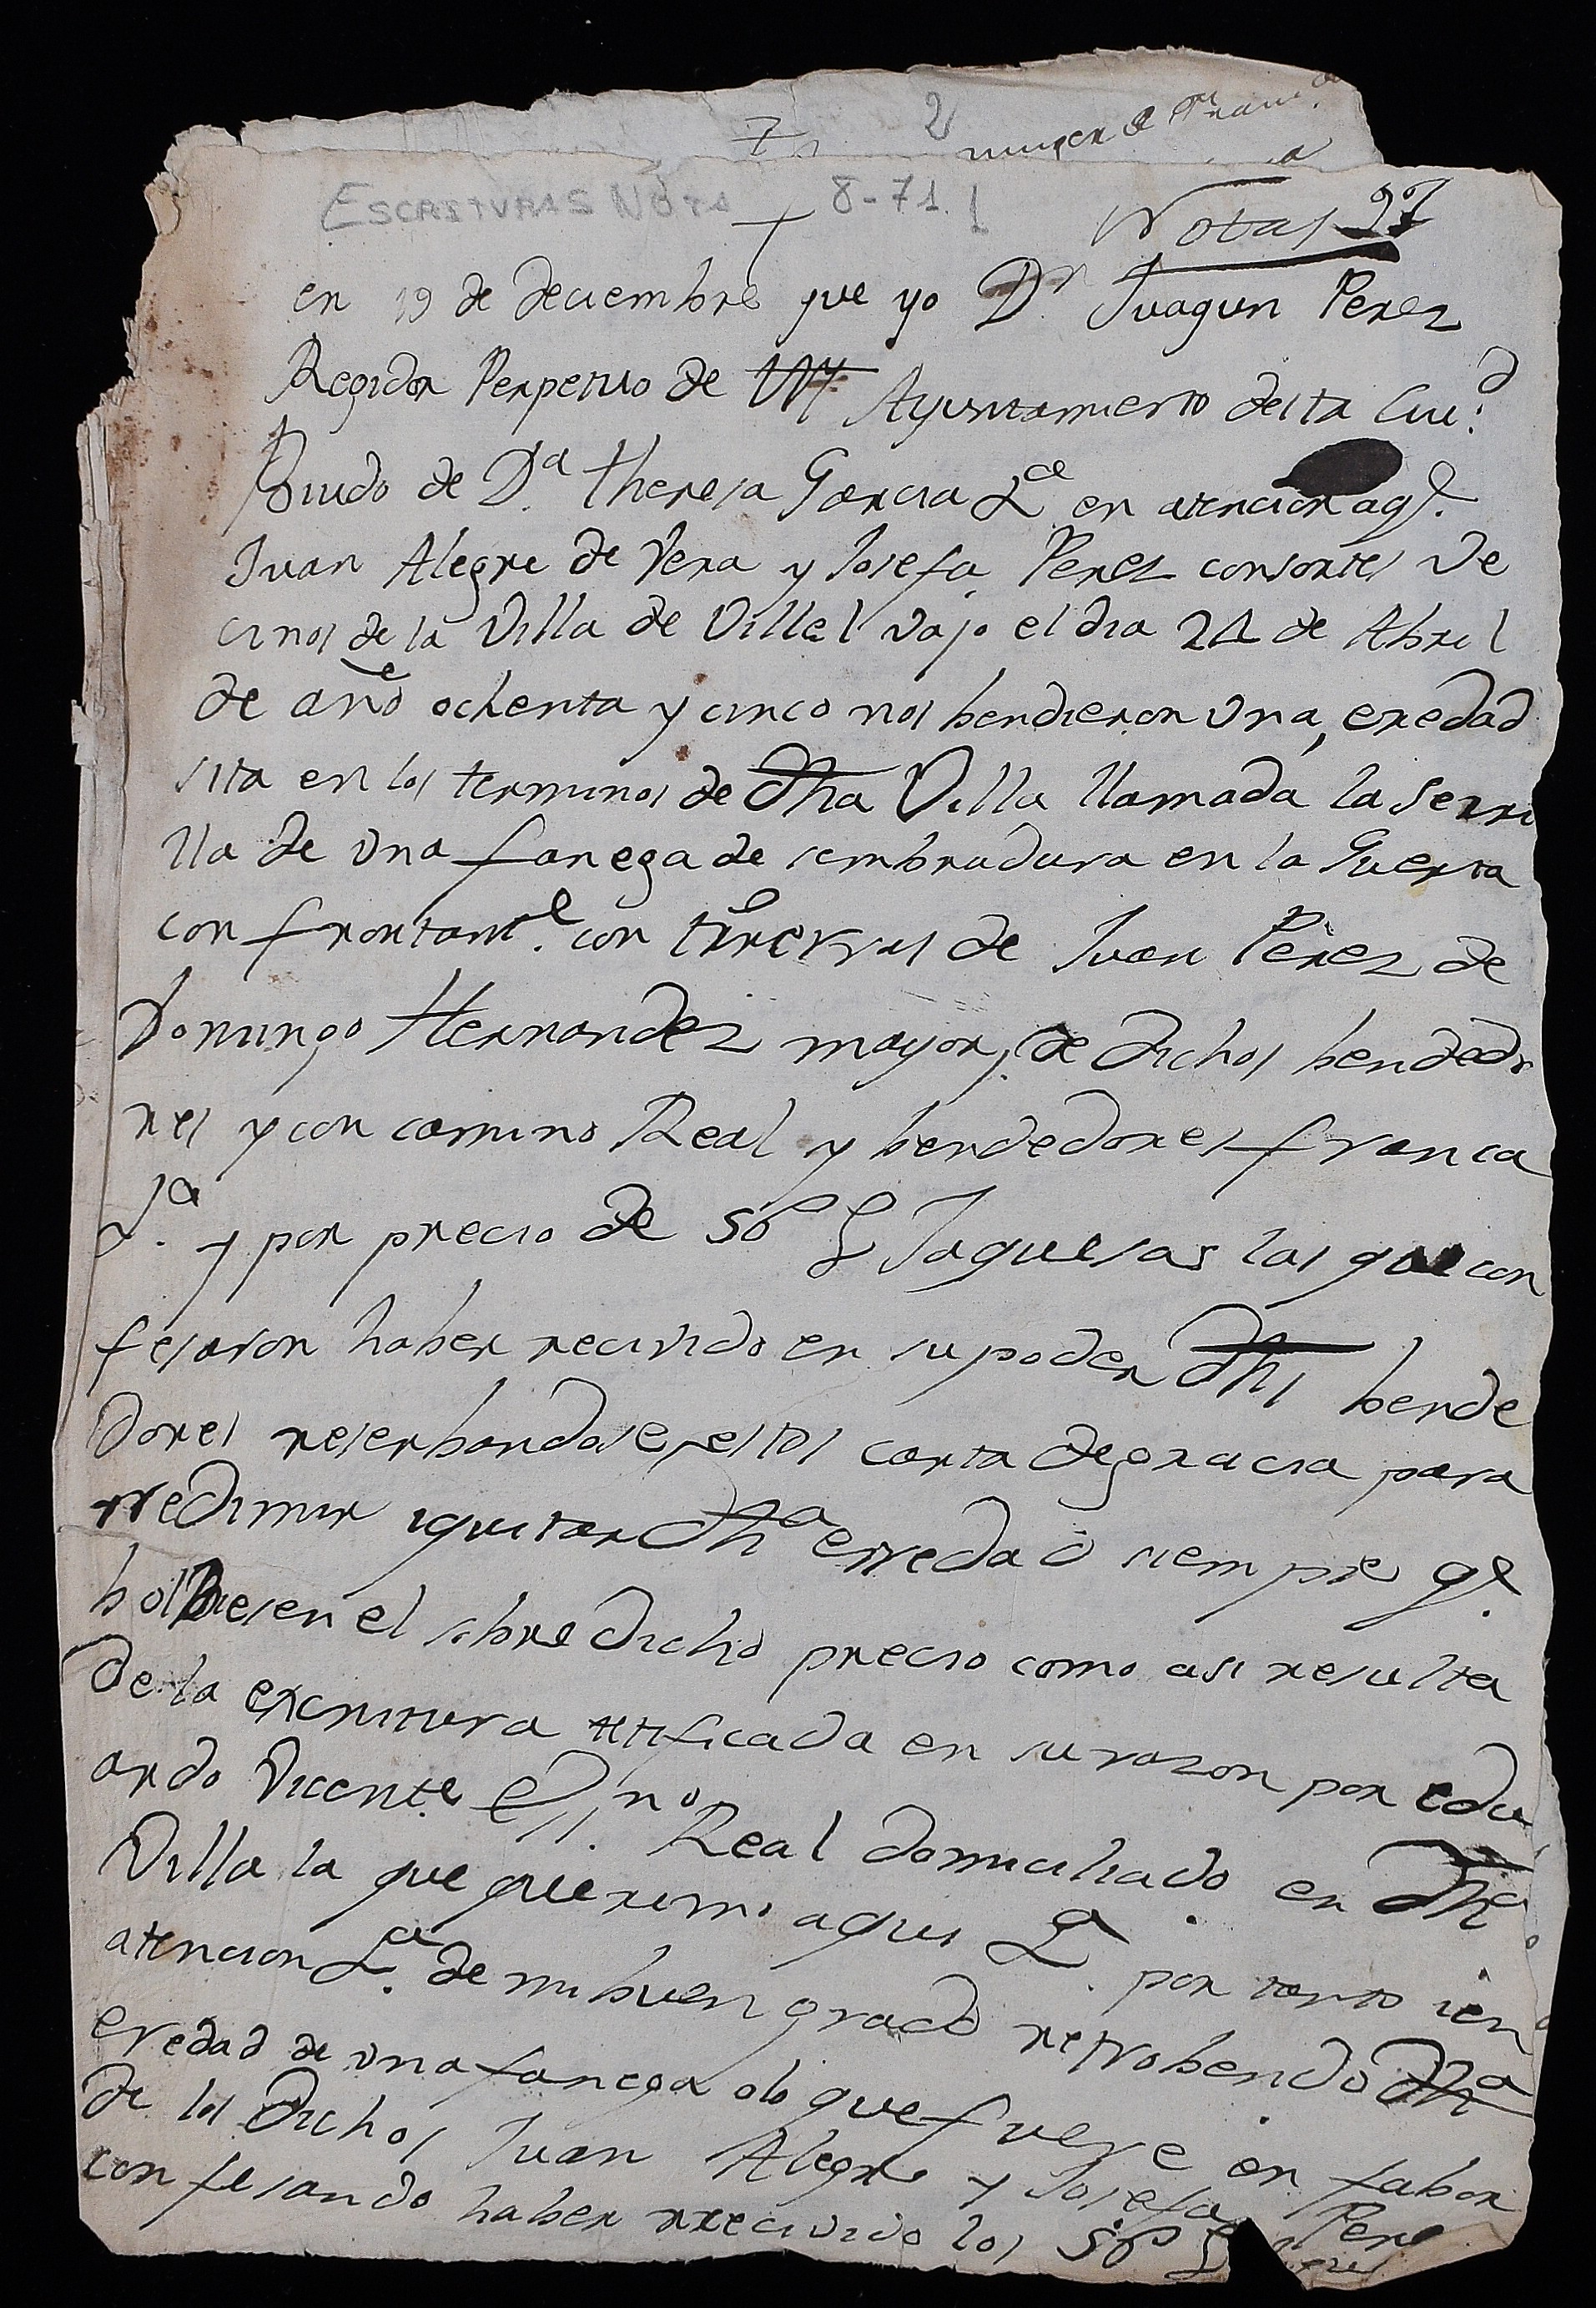 7 2
muger
ESCRITURAS NOTA 8-71.
Notas 27
en 19 de deciembre que yo Dn. Juaqun Perez
Regidor Perpetuo de Ayuntamiento desta Ciu.d
Biudo de D.a theresa Garcia &.ce en atencion a q.e
Juan Alegre de Vera y Josefa Perez consortes Ve
cinos de la Villa de Villel vajo el dia 24 de Abril
de año ochenta y cinco nos bendieron una eredad
sita en los terminos de dha Villa llamada la Serri
lla de una fanega de sembradura en la Guerta
confrontant.e con tierras de Juan Perez de
Domingo Hernandez mayor, de dichos bendedo
res y con camino Real y bendedores franca
&.a y por precio de 50 L Jaquesas las que con
fesaron haber recivido en su poder dhs bende
dores reserbandose estos carta degracia para
rredimir iquitar dha erredad siempre q.e
bolbiesen el sobre dicho precio como asi resulta
de la excritura testificada en su razon por edu
ardo Vicente Ess.no Real domiciliado en dha
Villa la que queremos aqui &.a por tanto en
atencion &.a de mi buen grado retrobendo dha
eredad de una fanega olo que fuese en fabor
de los dichos Juan Alegre y Josefa Pere
confesando haber rrecivido los 50 L